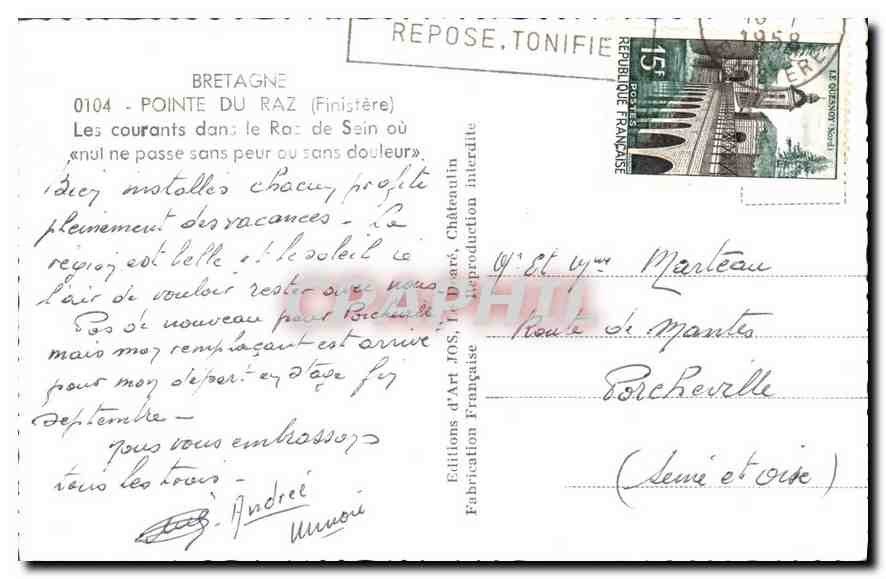 REPOSE, TONIFIE
1958
15F
POSTES
REPUBLIQUE FRANÇAISE
LE QUESNOY (Nord)
BRETAGNE
0104 - POINTE DU RAZ (Finistère)
Les courants dans le Raz de Sein où
«nul ne passe sans peur ou sans douleur».
Bien installés chacun profite
pleinement des vacances - La
région est belle et le soleil a
l'air de vouloir rester avec nous.
Pas de nouveau pour Porcheville
mais mon remplaçant est arrivé
pour mon départ en stage fin
septembre -
Nous vous embrassons
tous les trois -
Andrée
Editions d'Art JOS, Châteaulin
Fabrication Française Reproduction interdite
Mr Et Mme Marteau
Route de Mantes
Porcheville
(Seine et Oise)
CPAPHIL